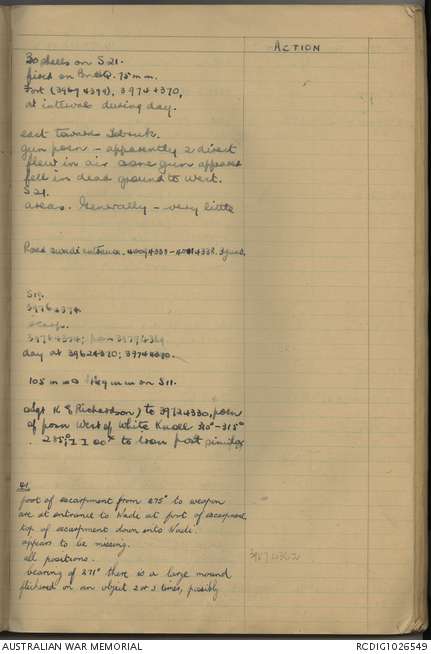 ACTION
30 shells on S21.
fired on Bn HQ. 75 mm.
Fort (39694394), 39744370,
at interval during day.
east towards Tobruk.
gun posn - apparently 2 direct
flew in air one gun appeared
fell in dead ground to West.
S21.
areas. Generally - very little
Road entrance.
S19.
39764374
scarp.
39764374; posn 39794369
day at 39624370; 39744370.
105 mm on S11.
(Sgt K E Richardson) to 39724330, posn
of posn West of White Knoll 310° - 315°
to iron post
foot of escarpment from 275° to weapon
are at entrance to Wadi at foot of escarpment
top of escarpment down into Wadi.
appears to be missing.
all positions.
bearing of 271° there is a large mound
flickered on an object 2 or 3 times, possibly
AUSTRALIAN WAR MEMORIAL
RCDIG1026549